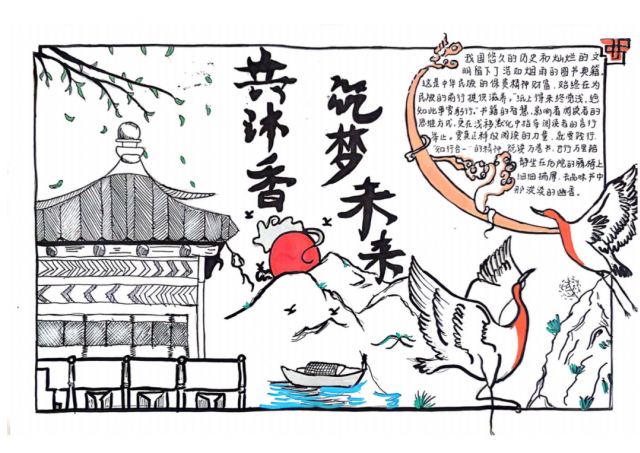 共沐书香
筑梦未来
我国悠久的历史和灿烂的文
明留下了浩如烟雨的图书典籍,
这是中华民族的保贵精神财富,始终在为
民族的前行提供滋养。"纸上得来终觉浅,绝
知此事要躬行。"书籍的智慧,影响着阅读者的
思维方式,更在浅移默化中指导阅读者的言行
举止。要真正释放阅读的力量,就要践行
"知行合一"的精神,既读万卷书,也行万里路
静坐在
细细揣摩,去品味书中
那淡淡的幽香。